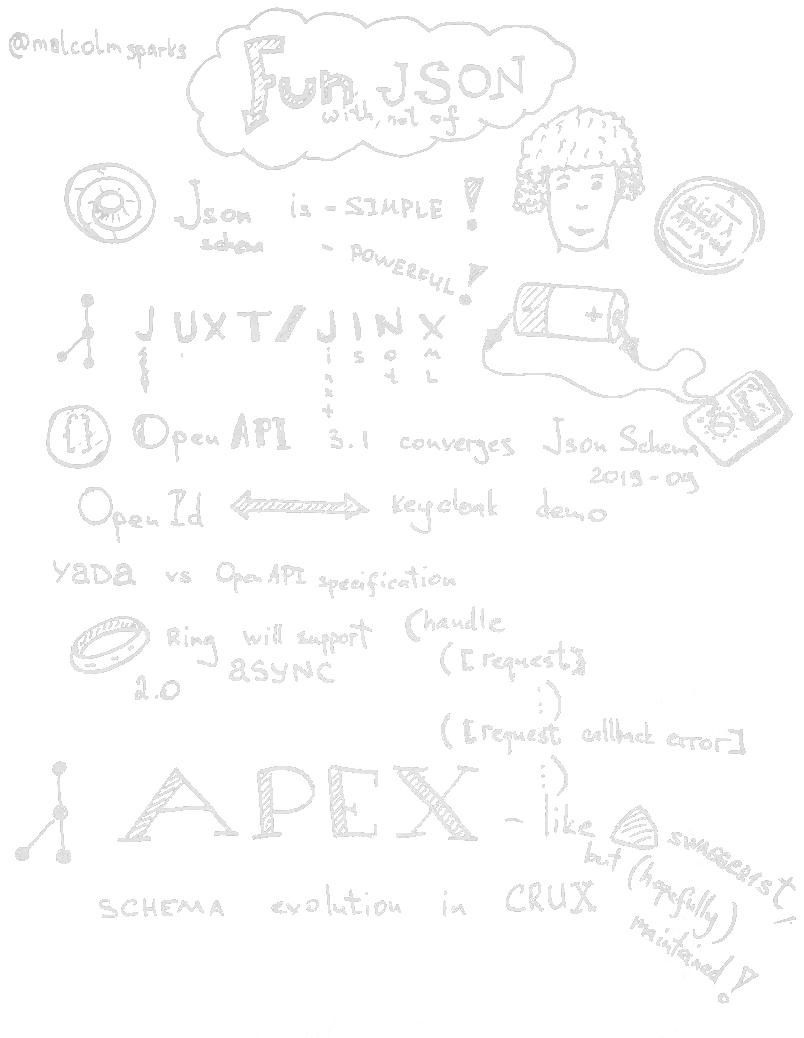 @malcolmsparks
Fun JSON
with, not of
Json is - SIMPLE !
schema - POWERFUL !
Rich
Approved
JUXT/JINX
i s o m
n t L
x
t
{} Open API 3.1 converges Json Schema
2019-09
Open Id Keycloak demo
yaDa vs OpenAPI specification
Ring will support
aSYNC
2.0
(handle
([request]
:)
([request callback error]
:)
APEX - like swaggerist,
but (hopefully)
maintained !
SCHEMA evolution in CRUX